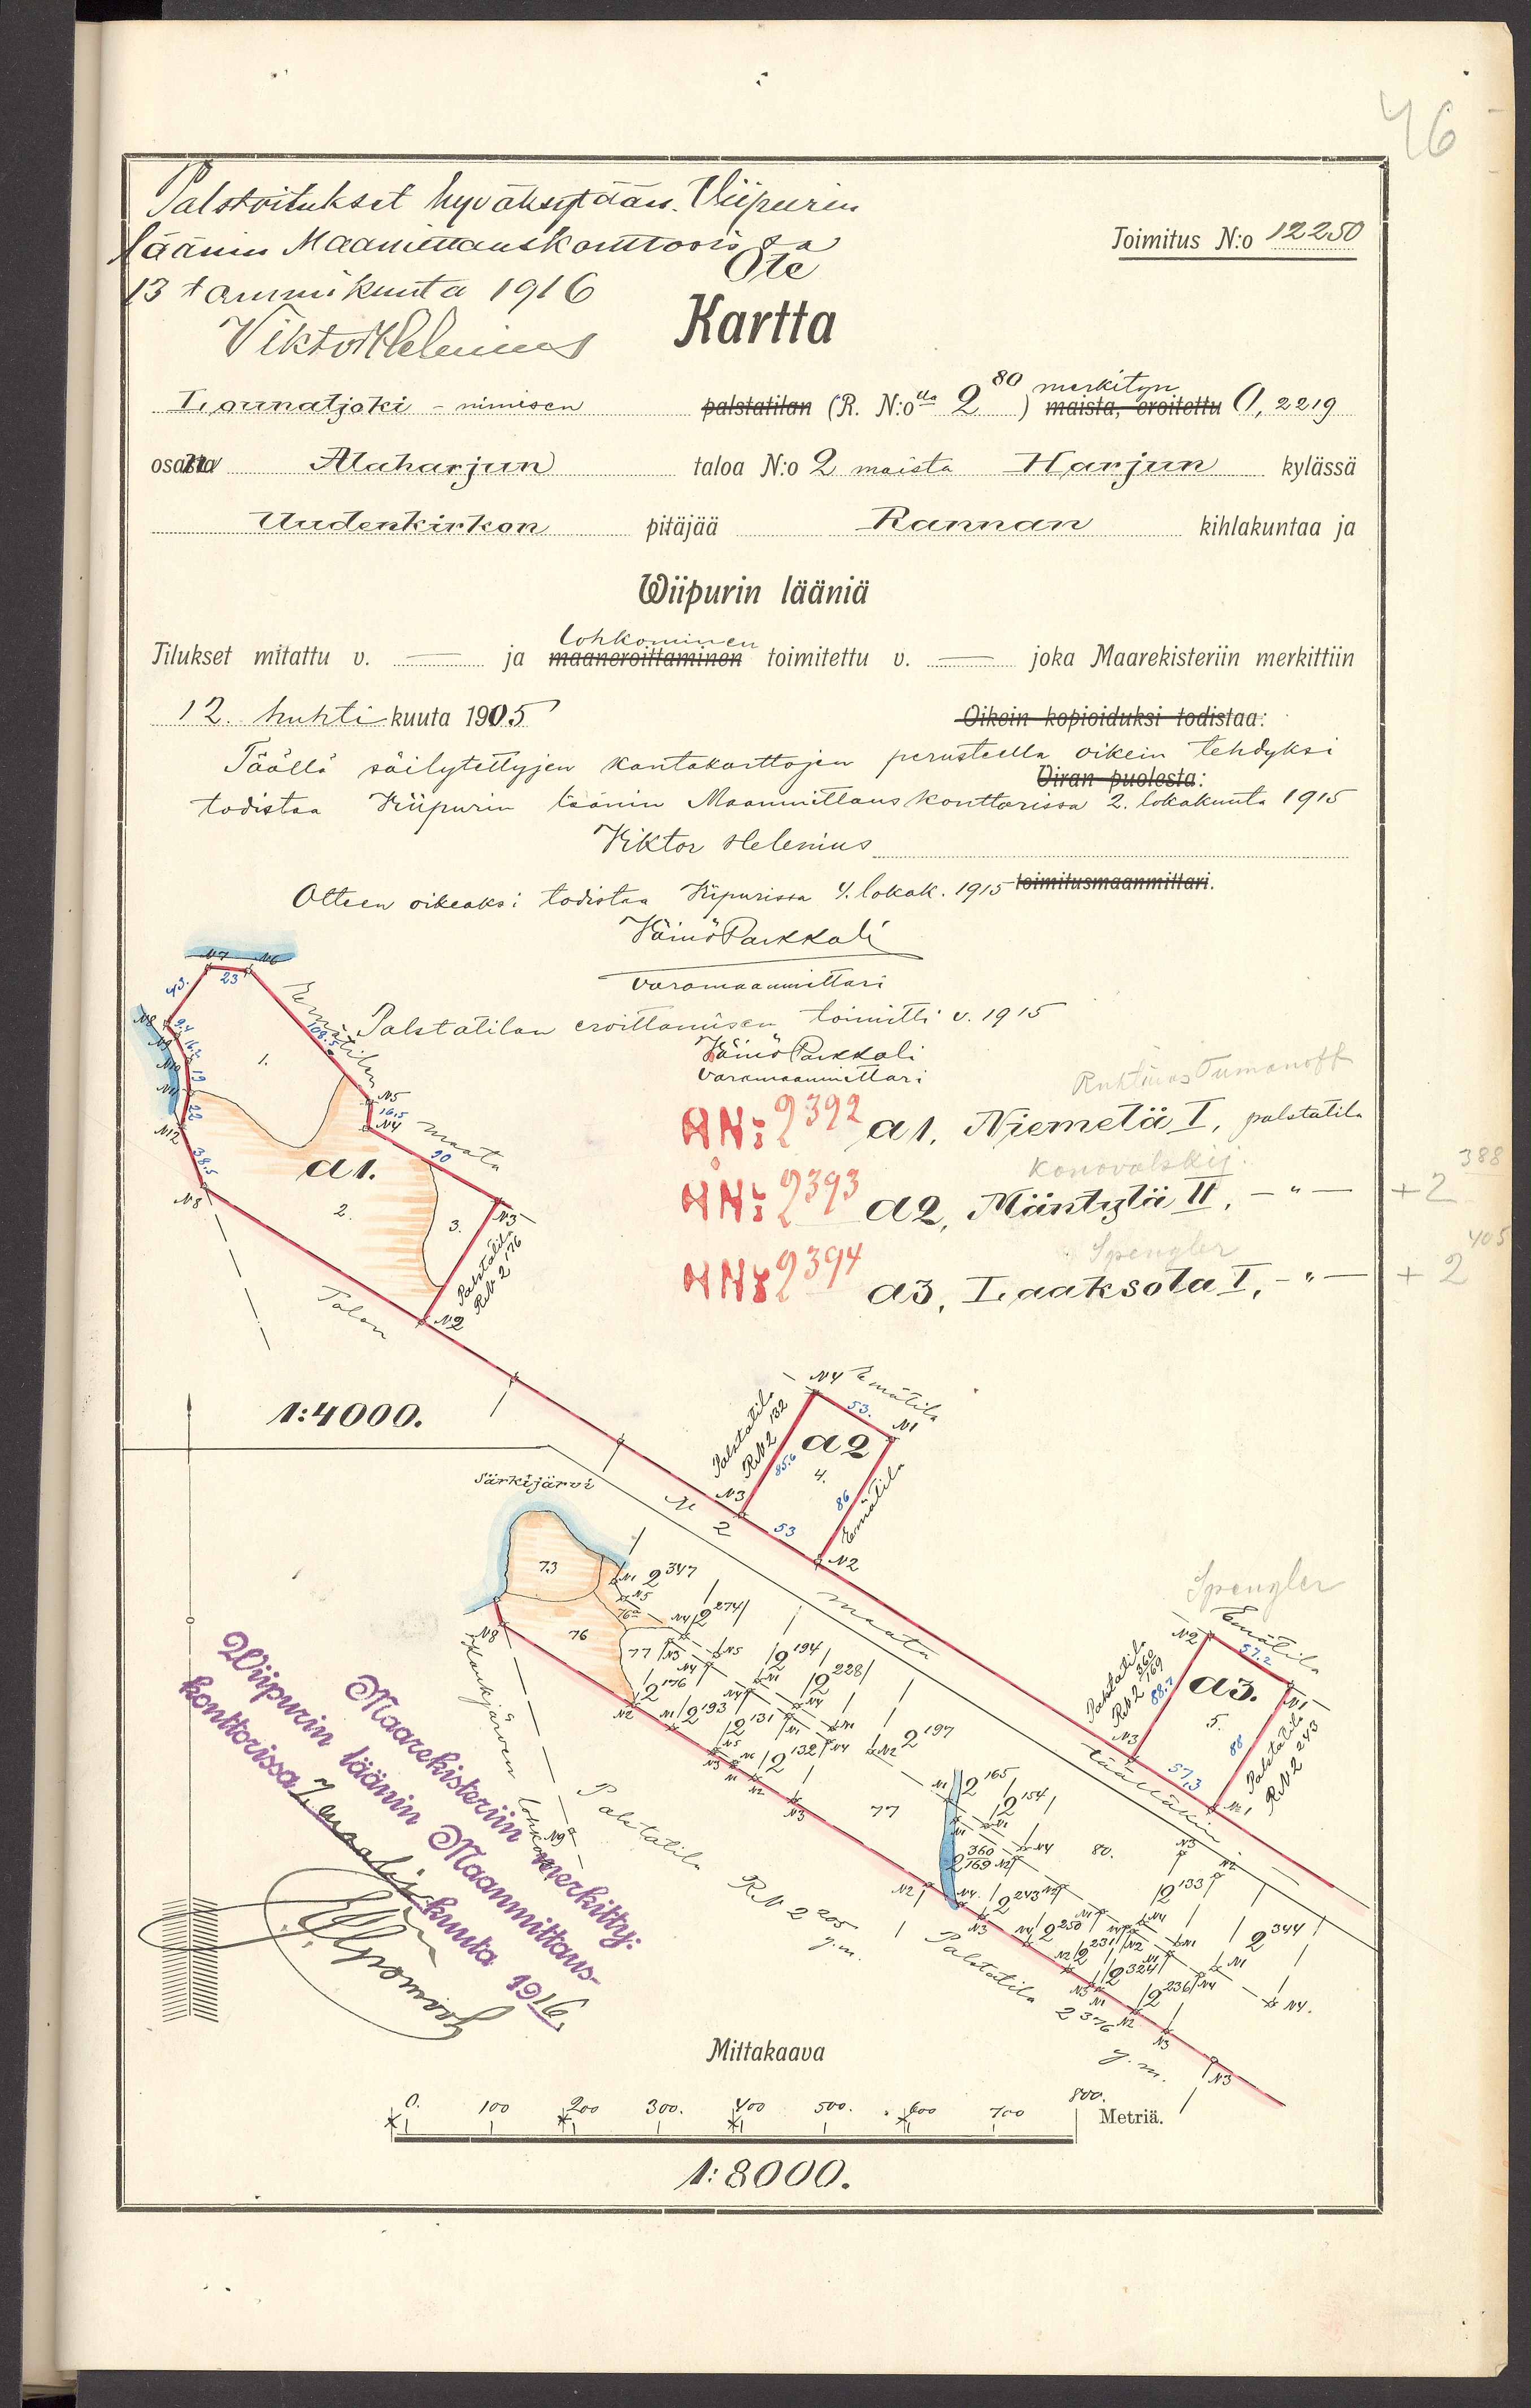 46
Palstoitukset hyväksytään. Viipurin
läänin Maanmittauskonttorissa
13 tammikuuta 1916
Viktor Helenius
Toimitus N:o 12250
Ote
Kartta
Lounatjoki - nimisen palstatilan (R. N:olla 2 80) merkityn maista, eroitettu 0,2219
osasta Alaharjun taloa N:o 2 maista Harjun kylässä
Uudenkirkon pitäjää Rannan kihlakuntaa ja
Wiipurin lääniä
lohkominen
Tilukset mitattu v. — ja maaneroittaminen toimitettu v. — joka Maarekisteriin merkittiin
12. huhti kuuta 1905
Oikein kopioiduksi todistaa:
Täällä säilytettyjen kantakarttojen perusteella oikein tehdyksi
Viran puolesta:
todistaa Viipurin läänin Maanmittauskonttorissa 2. lokakuuta 1915
Viktor Helenius
toimitusmaanmittari.
Otteen oikeaksi todistaa Viipurissa 4. lokak. 1915
Väinö Parkkali
varamaanmittari
Palstatilan eroittamisen toimitti v. 1915
Väinö Parkkali
varamaanmittari
Ruhtinas Tumanoff
RN:i 2 392 a1, Niemelä I, palstatila
Konovalskij.
RN:i 2 393 a2, Mäntylä II, — " — + 2 388
Spengler
RN:i 2 394 a3, Laaksola I, — " — + 2 405
N7 N6
23
43.
N8 9.4
N9 16.2
N10 19
N11 22
N12
38.5
N8
108.5
Emätilan maata
N5
16.5
N4
90
N3
1.
a1.
2.
3.
Palstatila
RN 2 176
N2
Talon N 2 maata täälläkin
1:4000.
N4 Emätila
53.
N1
Palstatila
RN 2 132
85.6
a2
4.
86
Emätila
N3
53
N2
Spengler
N2 Emätila
57.2
N1
Palstatila
RN 2 360/169
88.7
a3.
5.
88
Palstatila
RN 2 243
N3
57,3
N1
Särkijärvi
73
76
76a
77
N1 2 347
N5
N4 2 274
N3 N5
2 194
2 176
2 228
N8
N2
2 193
2 131
2 132
2 197
77
N1 2 165
2 154
360
2 169
80.
2 243
2 250
2 231
2 324
2 236
2 133
2 344
N4.
N3
Kaukjärven lohkok.
N9
Palstatila RN 2 205
y.m.
Palstatila 2 376
y.m.
Maarekisteriin merkitty:
Wiipurin läänin Maanmittaus-
konttorissa 7. maalis kuuta 1916.
Mittakaava
0. 100 200 300. 400 500. 600 700 800.
Metriä.
1:8000.